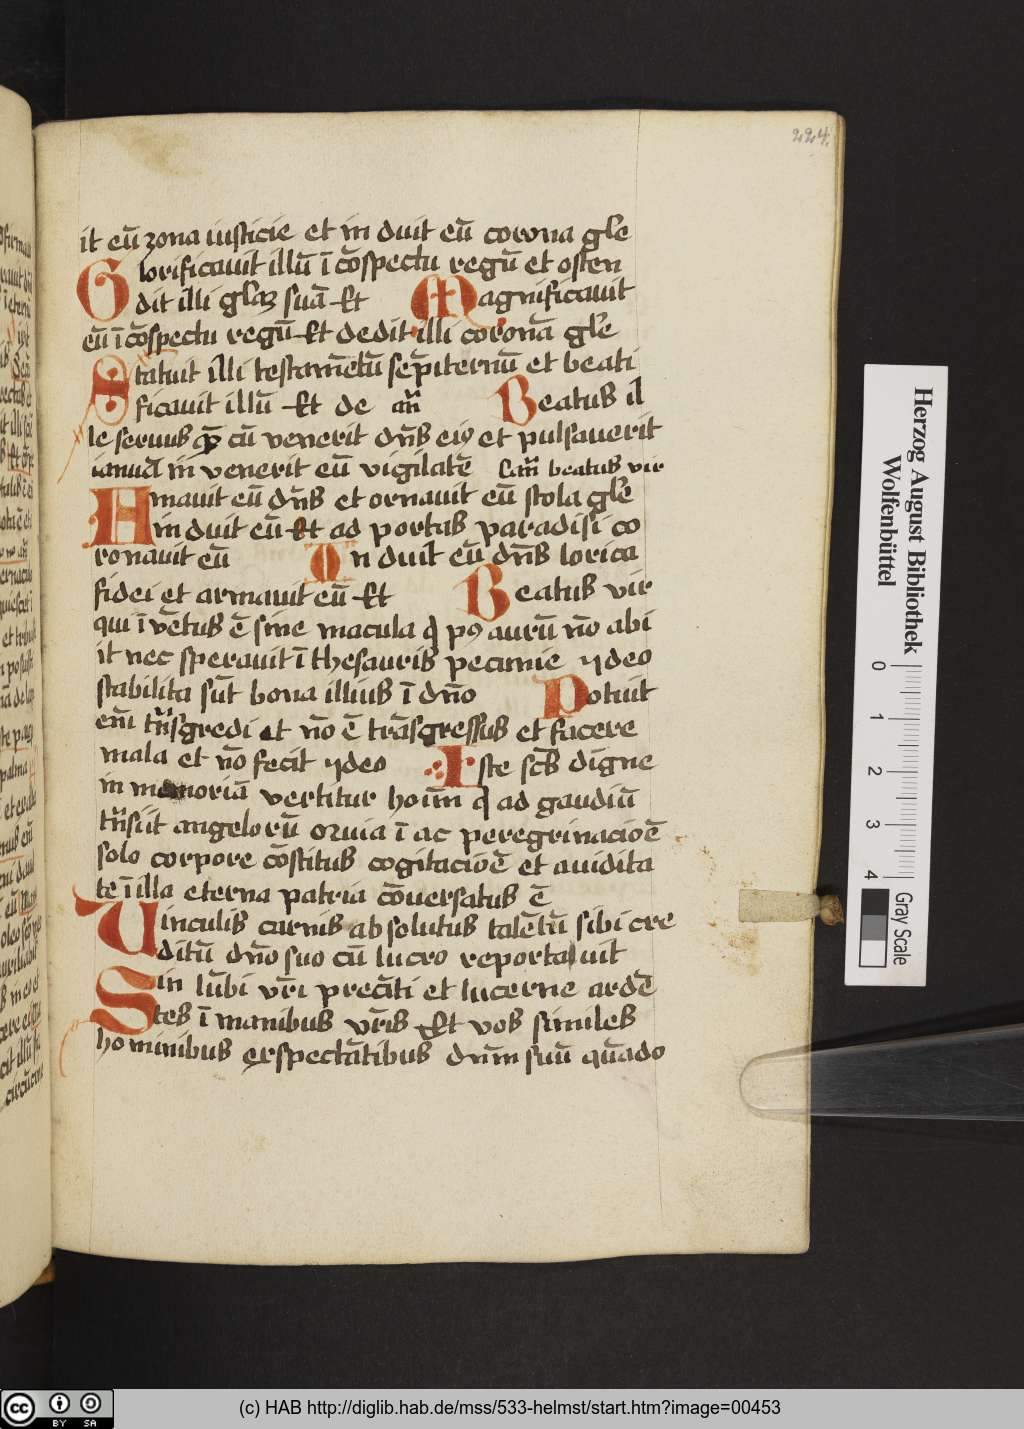 224.
it eū zona iusticie et in duit eū corona gle
Glorificauit illū ī cōspectu regū et osten
dit illi glaȝ suā Et Magnificauit
eū ī cōspectu regū Et dedit illi coronā gle
Statuit illi testamētū sēpiternū et beati
ficauit illū Et de añ Beatus il
le seruus cū venerit dn̄s eiꝯ et pulsauerit
ianuā in venerit eū vigilatē beatus vir
Amauit eū dn̄s et ornauit eū stola gle
in duit eū Et ad portas paradisi co
ronauit eū In duit eū dn̄s lorica
fidei et armauit eū Et Beatus vir
qui ī vētus ē sine macula q̄ pꝯ aurū nō abi
it nec sperauit ī thesauris pecunie ydeo
stabilita sūt bona illius ī dn̄o Potuit
em̄ trn̄sgredi et nō ē trāsgressus et facere
mala et nō fecit ydeo Iste scūs digne
in memoriā vertitur hoīm q̄ ad gaudiū
trn̄sijt angelorū ī ac peregrinacioē
solo corpore cōstitus cogitacioē et auidita
te ī illa eterna patria cōuersatus ē
Uinculis carnis absolutus talētū sibi cre
ditū dn̄o suo cū lucro reportauit
Sin lūbi vr̄i precīti et lucerne ardē
tes ī manibus vr̄is Et vos similes
hominibus exspectātibus dn̄m suū quādo
Herzog August Bibliothek
Wolfenbüttel
0 1 2 3 4
Gray Scale
cc BY SA
(c) HAB http://diglib.hab.de/mss/533-helmst/start.htm?image=00453